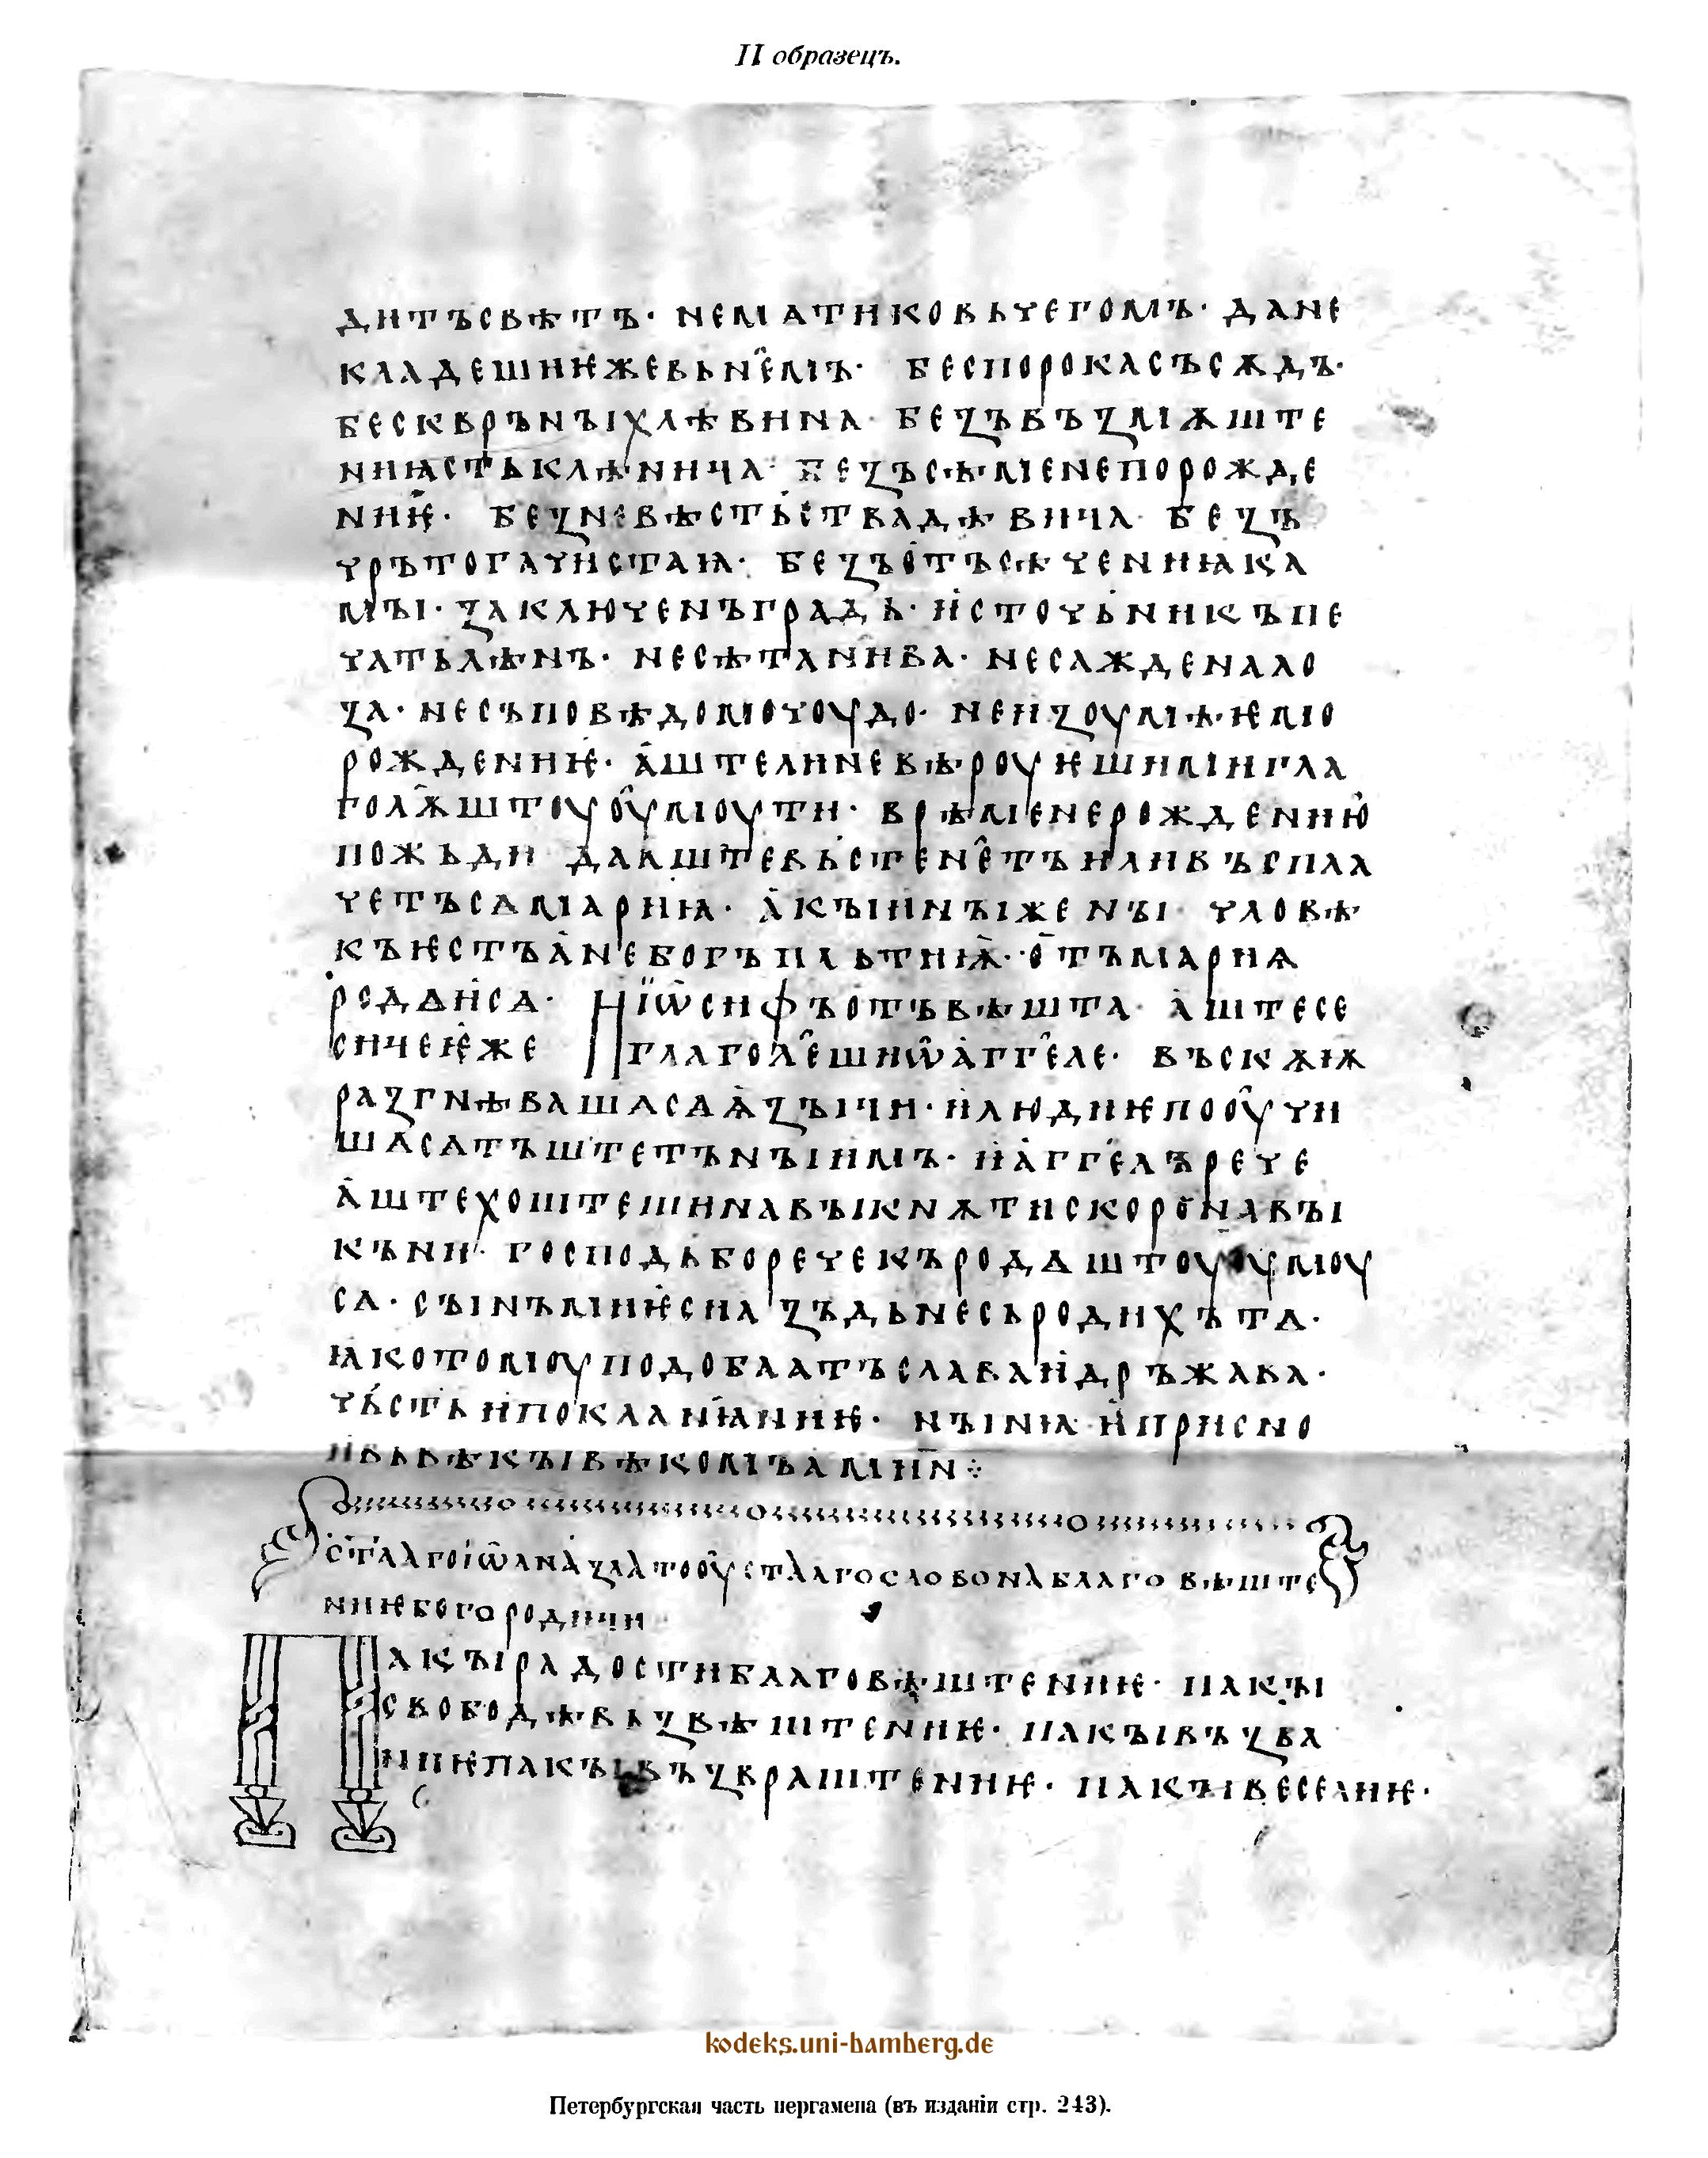 II образецъ.
дитъсвѣтъ· нематиковьчегомъ· дане
кладешиѥжевьн҄емъ· беспорокасъсѫдъ·
бесквръныхлѣвина· безъвъзмѫште
ниꙗстъклѣница· безъсѣменепорожде
ниѥ· безневѣстьствадѣвица· безъ
чрътогачистаꙗ· безъотъсѣчениꙗка
мꙑ· заключенъградъ· источьникъпе
чатьлѣнъ· несѣтанива· несажденало
за· несъповѣдомочоудо· неизоумѣѥмо
рождениѥ· аштелиневѣроуѥшимигла
гол҄ѫштоуоумоути· врѣменерождению
пожьди дааштевьстенетъиливъспла
четъсамариꙗ· акꙑинꙑженꙑ· чловѣ
къѥстъанебогъплътиѭ· отъмариѧ
родаиса· Иїѡсифъотъвѣшта· аштесе
сицеѥже глагол҄ешиѡаггеле· въскѫѭ
разгнѣвашасаѩзꙑци· илюдиѥпооучи
шасатъштетънꙑимъ· иаггелърече
аштехоштешинавꙑкнѫтискоронавꙑ
къни· господьборечекъродаштоуоумоу
са· сꙑнъмиѥсиа зъдьнесьродихъта·
ꙗкотомоуподобаатъславаидръжава·
чьстьипоклан҄ꙗниѥ· нꙑнꙗиприсно
ивьвѣкꙑвѣкомъамин҃ ⁘
ст҃алгоїѡаназлатооустаагословонаблаговѣште
ниѥбогородици
Пакꙑрадостиблаговѣштениѥ· пакꙑ
свободѣвьзвѣштениѥ· пакꙑвъзва
ниѥпакꙑвъзвраштениѥ· пакꙑвеселиѥ·
kodeks.uni-bamberg.de
Петербургская часть пергамена (въ изданіи стр. 243).